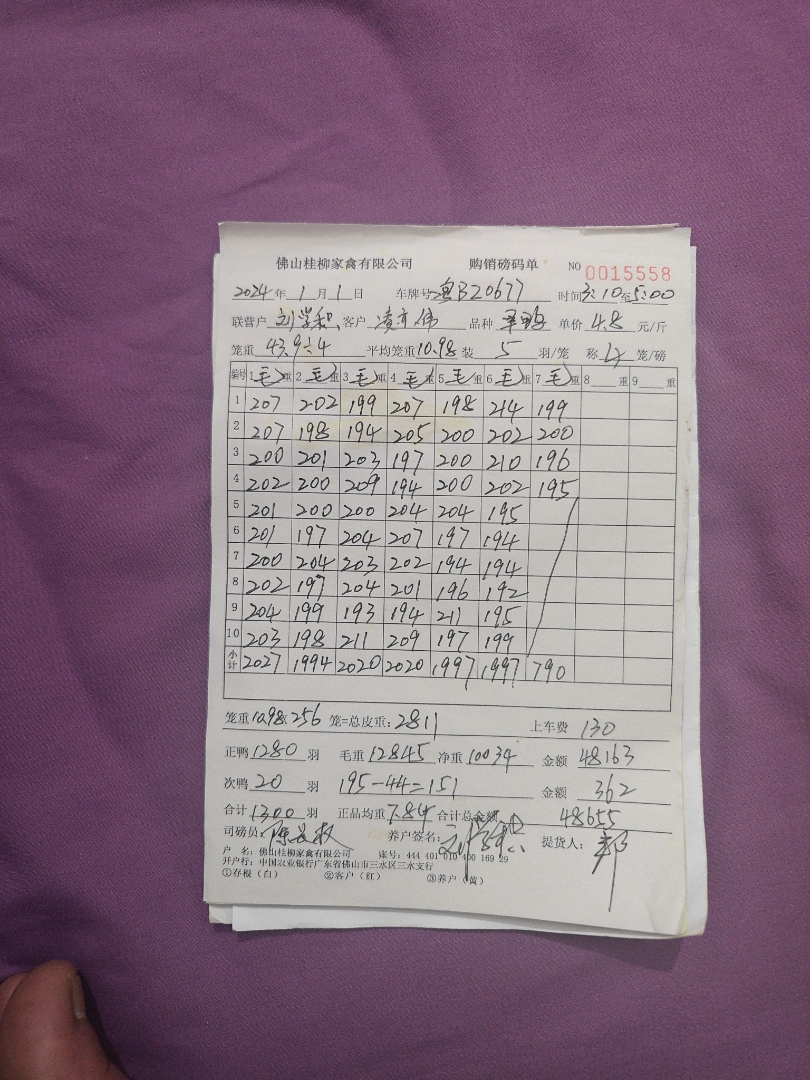 佛山桂柳家禽有限公司 购销磅码单 NO 0015558
2024年1月1日 车牌号 粤BZ0677 时间3:10至5:00
联营户 刘学和 客户 伟 品种 单价 4.8 元/斤
笼重 43.9÷4 平均笼重10.98 装 5 羽/笼 称 4 笼/磅
编号 1毛重 2毛重 3毛重 4毛重 5毛重 6毛重 7毛重 8 重 9 重
1 207 202 199 207 198 214 199
2 207 198 194 205 200 202 200
3 200 201 203 197 200 210 196
4 202 200 209 194 200 202 195
5 201 200 200 204 204 195
6 201 197 204 207 197 194
7 200 204 203 202 194 194
8 202 197 204 201 196 192
9 204 199 193 194 211 195
10 203 198 211 209 197 199
小计 2027 1994 2020 2020 1997 1997 790
笼重10.98×256 笼=总皮重:2811 上车费 130
正鸭1280羽 毛重12845 净重10034 金额 48163
次鸭20羽 195-44=151 金额 362
合计1300羽 正品均重7.84 合计总金额 48655
司磅员: 陈 权 养户签名: 提货人: 郭
户 名:佛山桂柳家禽有限公司 账号:444 401 010 400 169 29
开户行:中国农业银行广东省佛山市三水区三水支行
①存根(白) ②客户(红) ③养户(黄)